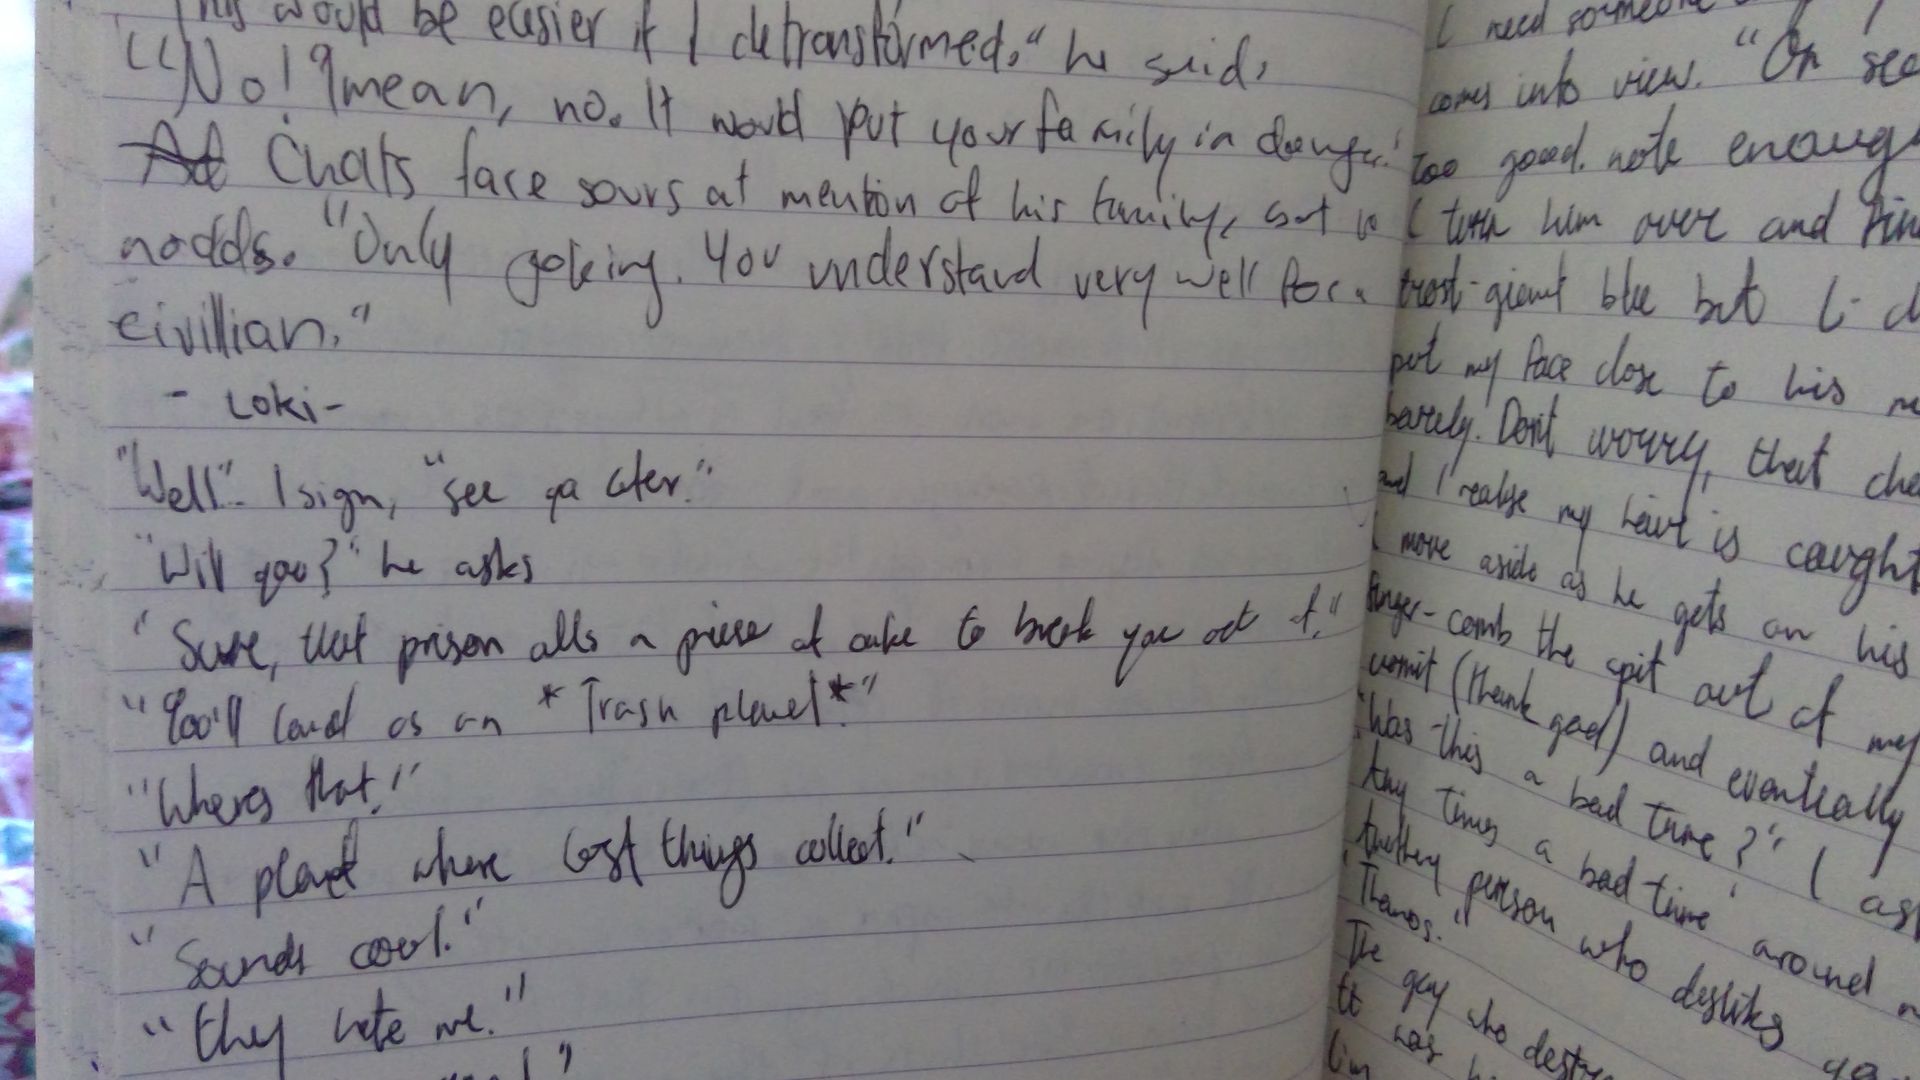 This would be easier if I detransformed." he said.
"No! I mean, no. It would put your family in danger."
Chats face sours at mention of his family, but
nodds. "Only goking. You understand very well for a
civillian."
- Loki -
"Well". I sign, "see ya later."
"Will you?" he asks
"Sure, that prison a piece of cake to break you out of."
"You'll land as an *Trash planet*."
"Wheres that."
"A planet where lost things collect."
"Sounds cool."
"They hate me."
I need someone
comes into view. "Oh
Too good. note enough
I turn him over and
frost-giant blue but I
put my face close to his
barely. Don't worry, that
and I realise my heart is caught
I move aside as he gets on his
finger-comb the spit out of my
vomit (thank god) and eventually
"Was this a bad time?" I
Any times a bad time around
person who desliks
"Thanos."
The guy who
It was
I'm